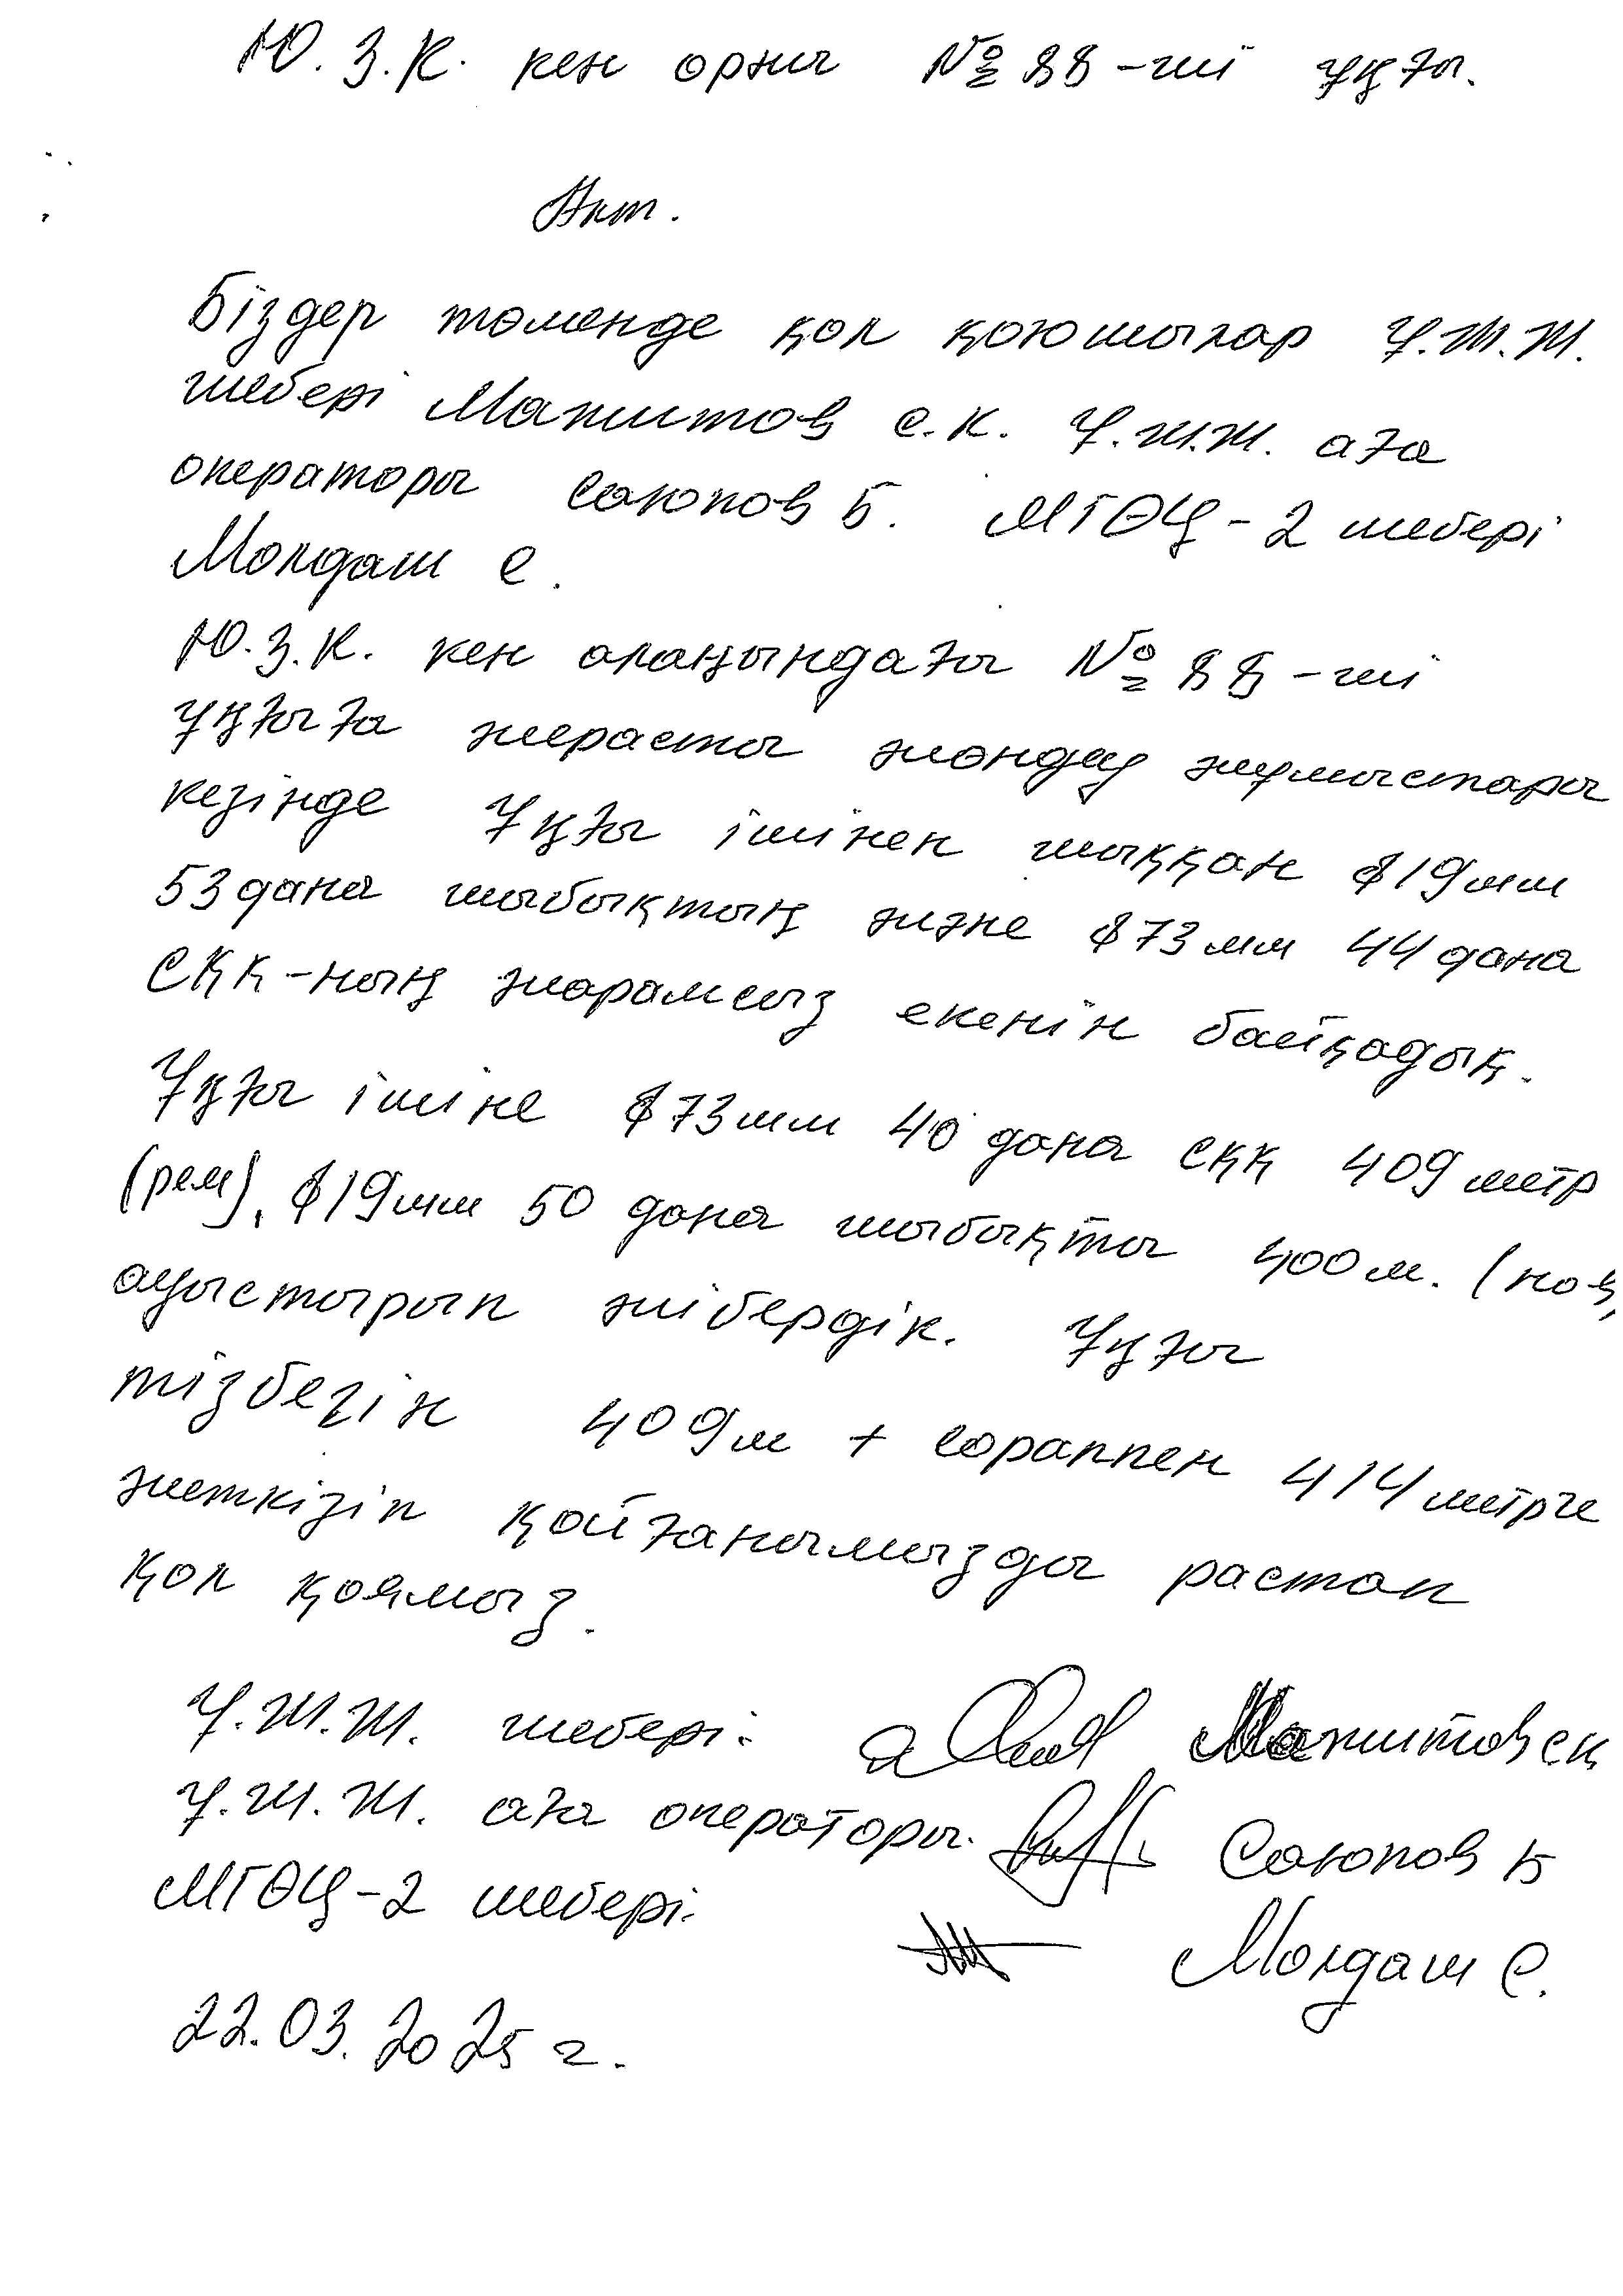 Ю.З.К. кен орны №88-ші ұңғы.
Акт.
Біздер төменде қол қоюшылар Ұ.Ж.Ж.
шебері Мапитов С.К. Ұ.Ж.Ж. аға
операторы Саюпов Б. МГӨЦ-2 шебері
Молдаш С.
Ю.З.К. кен алаңындағы №88-ші
ұңғыға жерасты жөндеу жұмыстары
кезінде Ұңғы ішінен шыққан ⌀19мм
53 дана шыбықтың және ⌀73мм 44 дана
СҚК-ның жарамсыз екенін байқадық.
Ұңғы ішіне ⌀73мм 40 дана СҚК 409 метр
(рем), ⌀19мм 50 дана шыбықты 400м. (нов,
ауыстырып жібердік. Ұңғы
тізбегін 409м + сораппен 414 метрге
жеткізіп қойғанымызды растап
қол қоямыз.
Ұ.Ж.Ж. шебері. Мапитов С.К
Ұ.Ж.Ж. аға операторы. Саюпов Б
МГӨЦ-2 шебері.
Молдаш С.
22.03.2025 г.